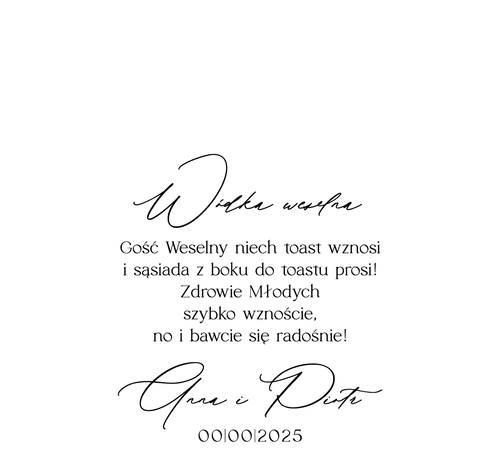 Wódka weselna
Gość Weselny niech toast wznosi
i sąsiada z boku do toastu prosi!
Zdrowie Młodych
szybko wznoście,
no i bawcie się radośnie!
Anna i Piotr
00|00|2025